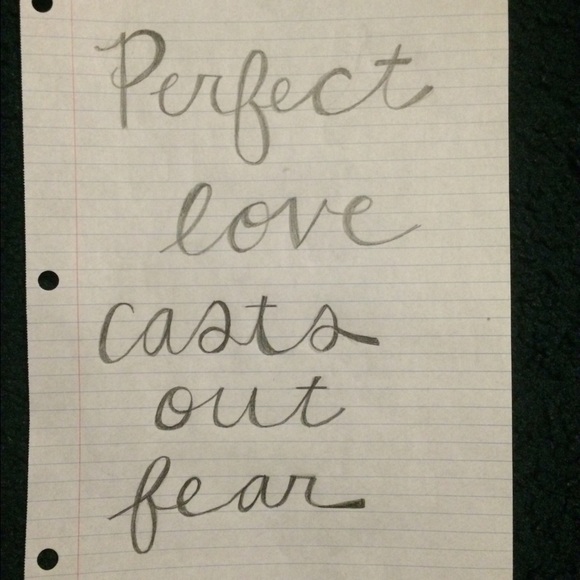 Perfect
love
casts
out
fear